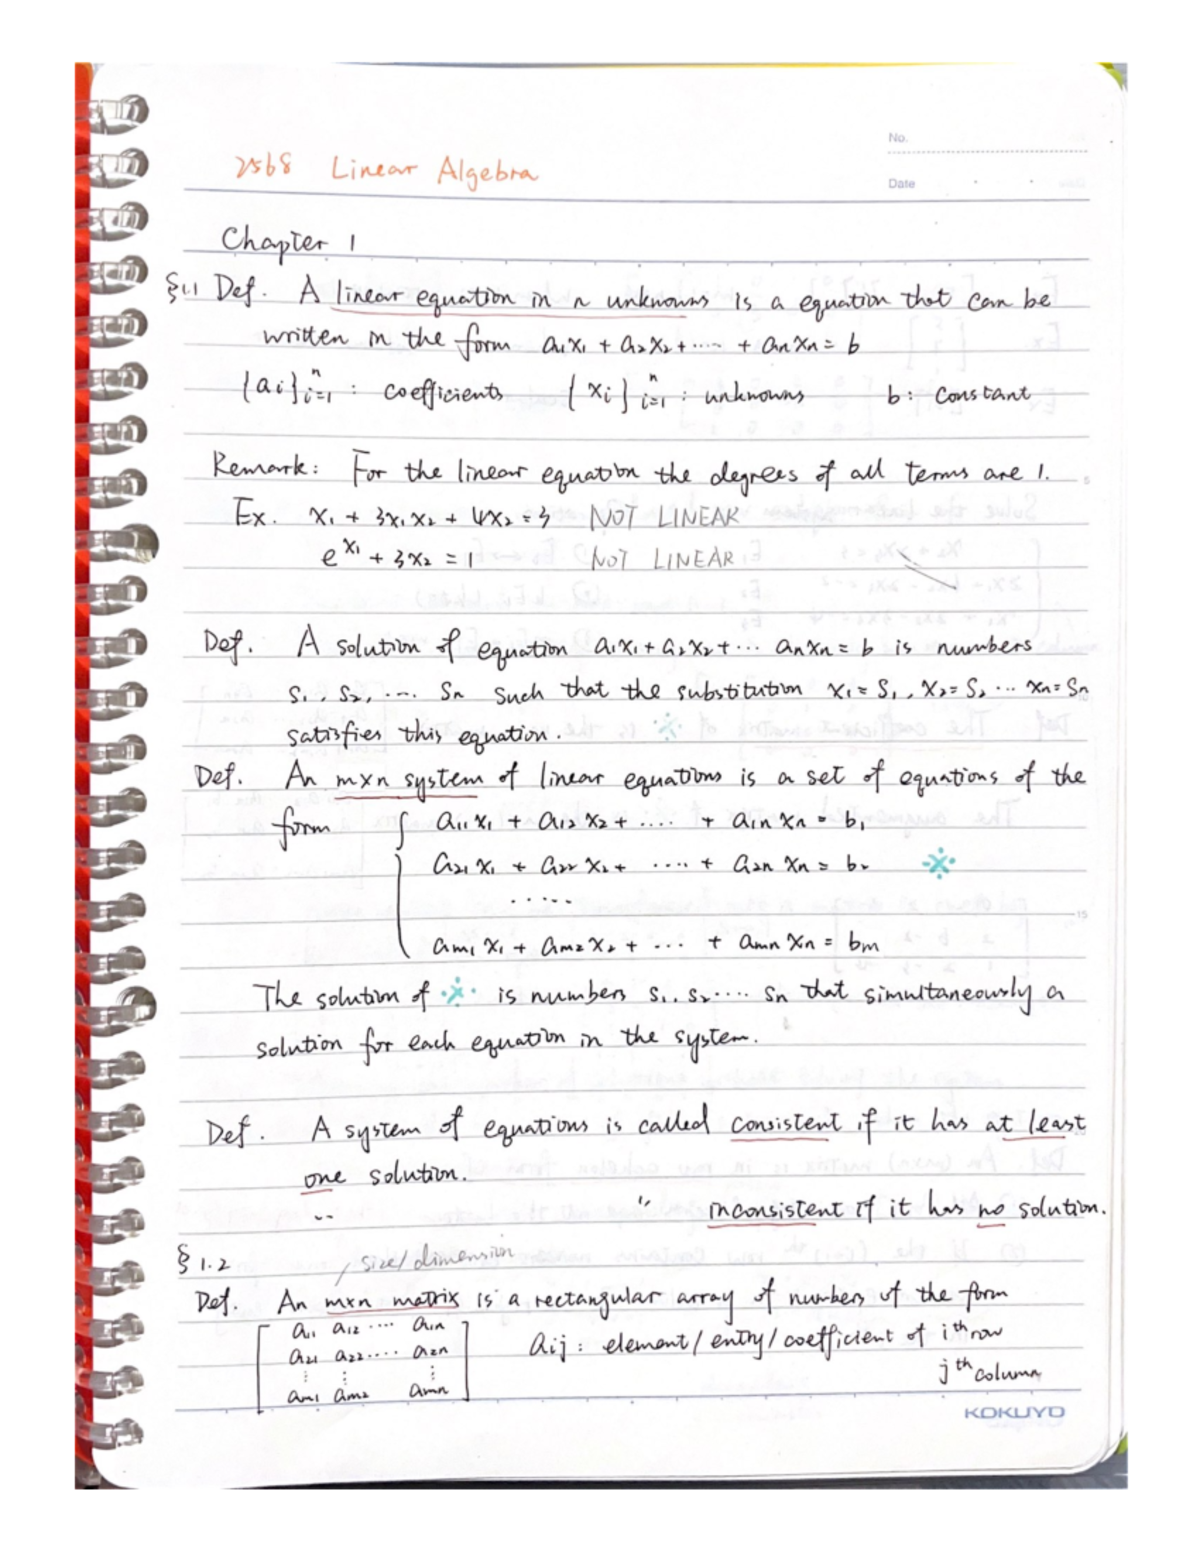 No.
2568 Linear Algebra
Date
Chapter 1
§1.1 Def. A linear equation in n unknowns is a equation that can be
written in the form a₁x₁ + a₂x₂ + ····· + aₙxₙ = b
{aᵢ}ⁿᵢ₌₁ : coefficients {xᵢ}ⁿᵢ₌₁ : unknowns b: constant
Remark: For the linear equation the degrees of all terms are 1.
Ex. x₁ + 3x₁x₂ + 4x₂ = 3 NOT LINEAR
e^x₁ + 3x₂ = 1 NOT LINEAR
Def. A solution of equation a₁x₁ + a₂x₂ + ··· aₙxₙ = b is numbers
s₁, s₂, ···· sₙ such that the substitution x₁ = s₁, x₂ = s₂ ··· xₙ = sₙ
satisfies this equation.
Def. An m×n system of linear equations is a set of equations of the
form { a₁₁x₁ + a₁₂x₂ + ···· + a₁ₙxₙ = b₁
a₂₁x₁ + a₂₂x₂ + ···· + a₂ₙxₙ = b₂ ※
·····
aₘ₁x₁ + aₘ₂x₂ + ··· + aₘₙxₙ = bₘ
The solution of ※ is numbers s₁, s₂ ···· sₙ that simultaneously a
solution for each equation in the system.
Def. A system of equations is called consistent if it has at least
one solution.
" " inconsistent if it has no solution.
§ 1.2
size/dimension
Def. An m×n matrix is a rectangular array of numbers of the form
[ a₁₁ a₁₂ ···· a₁ₙ ]
a₂₁ a₂₂ ···· a₂ₙ
⋮ ⋮ ⋮
aₘ₁ aₘ₂ aₘₙ
aᵢⱼ : element/entry/coefficient of iᵗʰ row
jᵗʰ column
KOKUYO